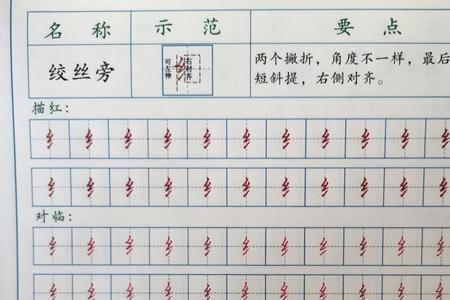 名称 示范 要点
绞丝旁 可左伸 右对齐 两个撇折，角度不一样，最后
短斜提，右侧对齐。
描红：
纟纟纟纟纟纟纟纟纟纟纟
纟纟纟纟纟纟纟纟纟纟纟
对临：
纟纟纟纟纟纟纟纟纟纟纟
纟纟纟纟纟纟纟纟纟纟纟